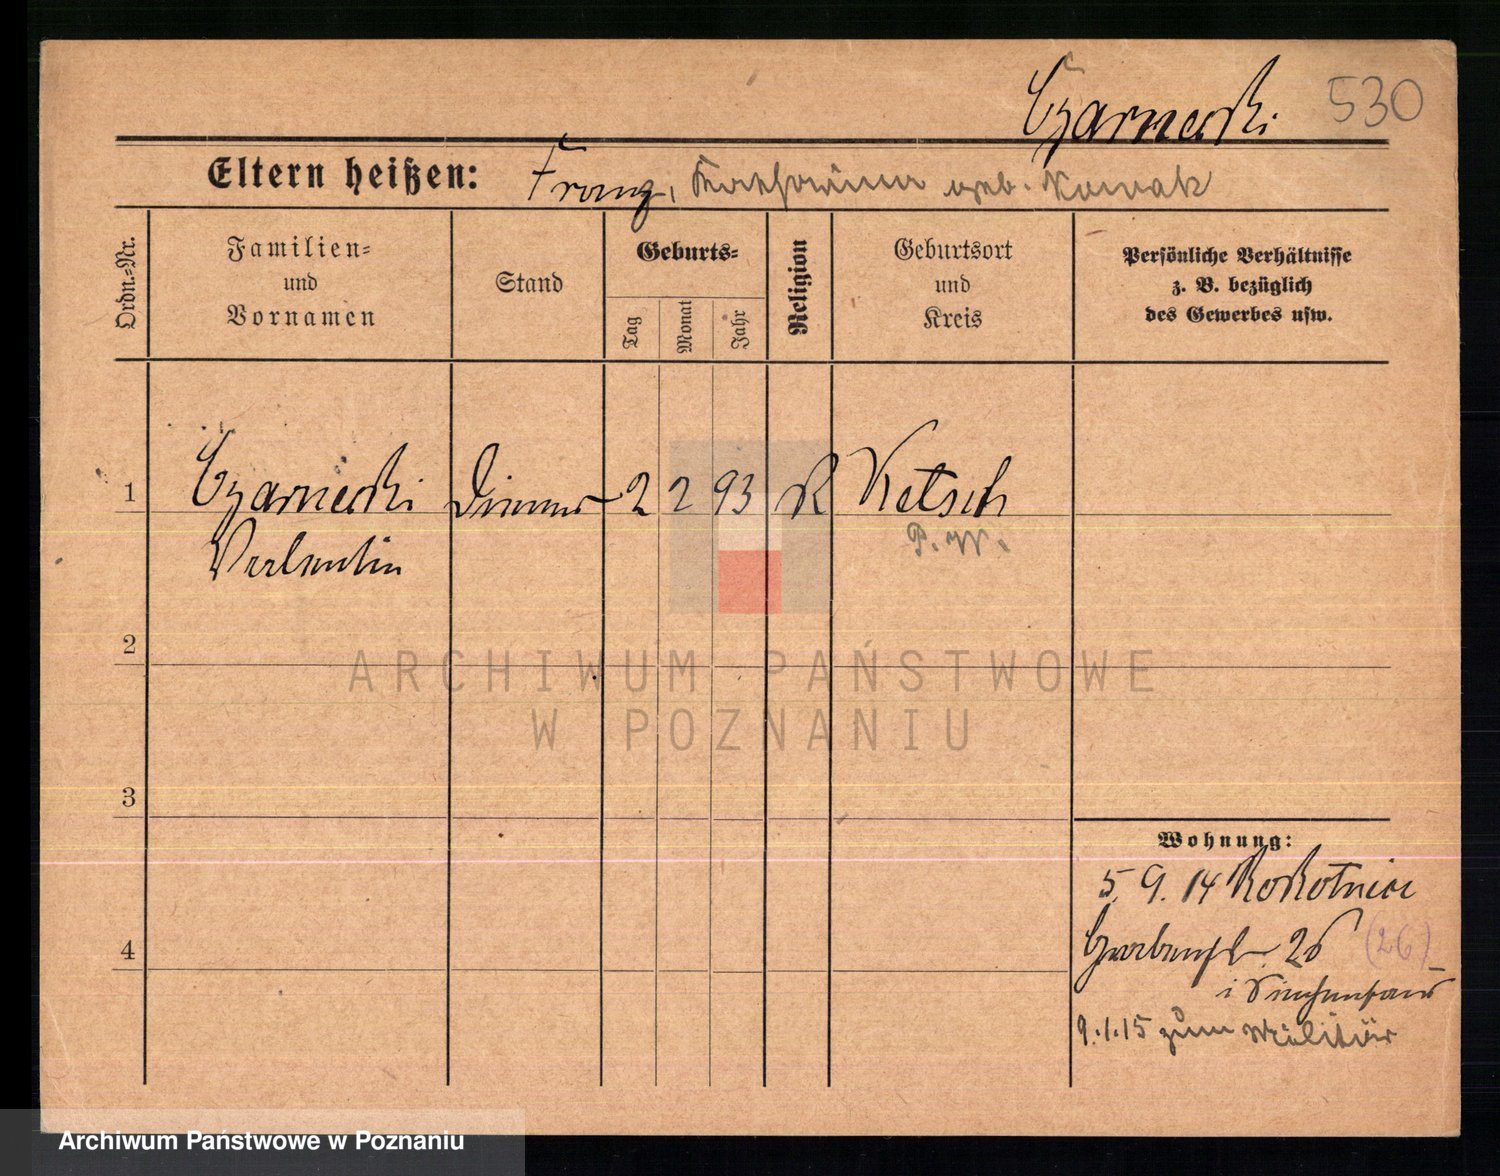 Czarnecki 530
Eltern heißen: Franz, Katharina geb. Nowak
Ordn.-Nr.
Familien-
und
Vornamen
Stand
Geburts-
Tag
Monat
Jahr
Religion
Geburtsort
und
Kreis
Persönliche Verhältnisse
z. B. bezüglich
des Gewerbes usw.
1 Czarnecki Diener 2 2 93 K Ketsch
Valentin P. W.
2
3
4
Wohnung:
5. 9. 14 Rokotnice
26 (26)
i Siechenhaus
9.1.15 zum Militär
ARCHIWUM PAŃSTWOWE
W POZNANIU
Archiwum Państwowe w Poznaniu